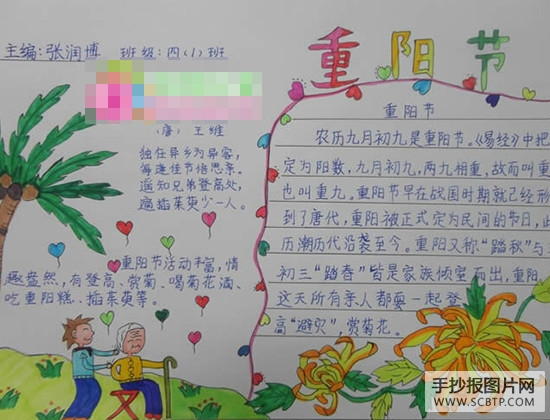 主编:张润博 班级:四(1)班
重阳节
(唐) 王维
独在异乡为异客,
每逢佳节倍思亲。
遥知兄弟登高处,
遍插茱萸少一人。
重阳节活动丰富,情
趣盎然,有登高、赏菊、喝菊花酒、
吃重阳糕、插茱萸等。
重阳节
农历九月初九是重阳节。《易经》中把
定为阳数,九月初九,两九相重,故而叫重
也叫重九。重阳节早在战国时期就已经形
到了唐代,重阳被正式定为民间的节日,此
历潮历代沿袭至今。重阳又称“踏秋”与
初三“踏春”皆是家族倾室而出,重阳
这天所有亲人都要一起登
高“避灾”,赏菊花。
手抄报图片网
WWW.SCBTP.COM